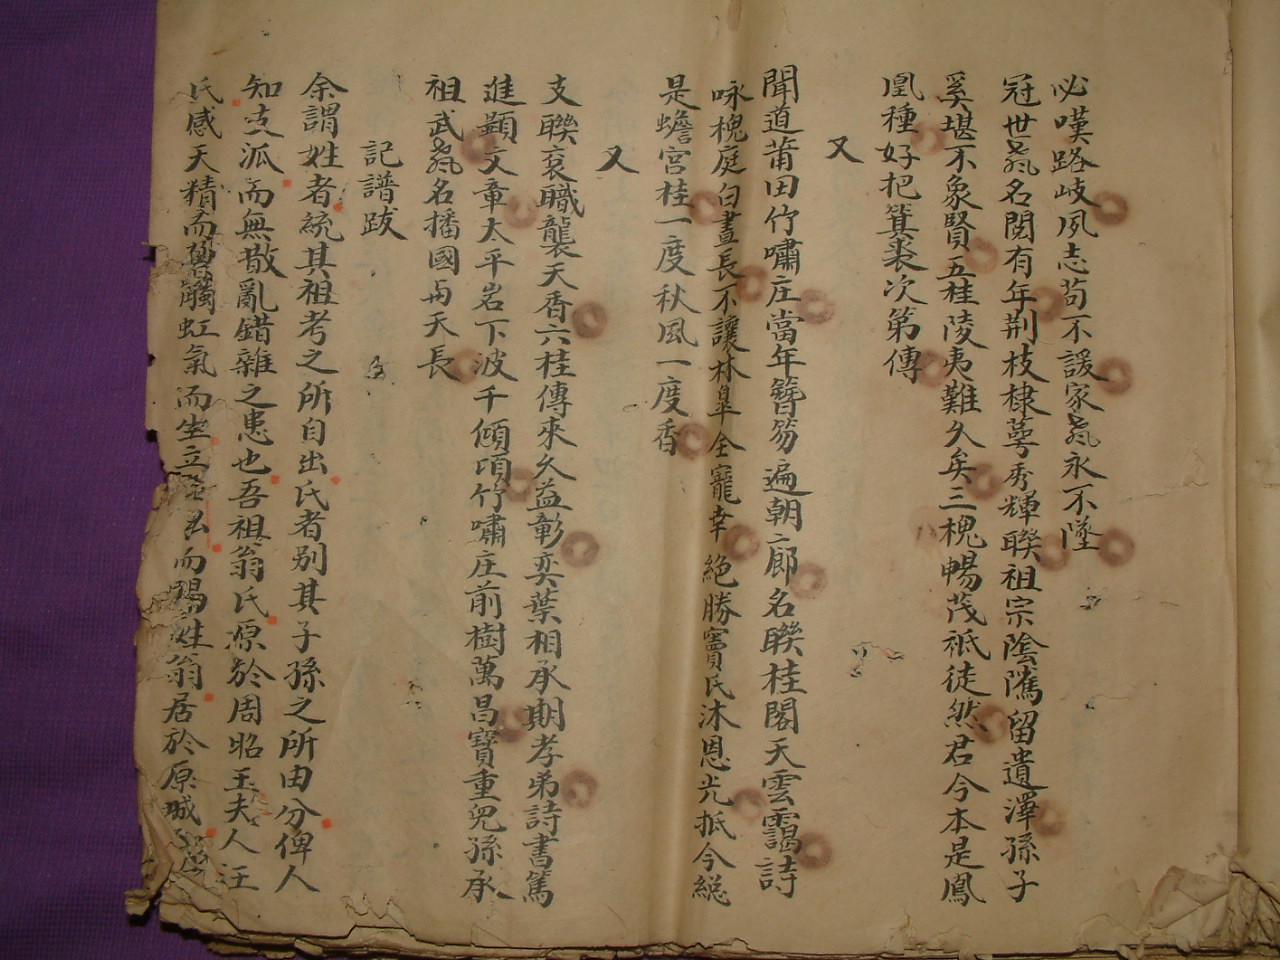 必嘆路岐夙志苟不諼家聲永不墜
冠世聲名閥有年荆枝棣萼秀輝聯祖宗陰隲留遺澤孫子
奚堪不象賢五桂陵夷難久矣三槐暢茂祗徒然君今本是鳳
凰種好把箕裘次第傳
又
聞道莆田竹嘯庄當年簪笏遍朝廊名聯桂閣天雲靄詩
咏槐庭白晝長不讓林皋全寵幸絶勝竇氏沐恩光抵今總
是蟾宫桂一度秋風一度香
又
支聯衮職襲天香六桂傳來久益彰奕葉相承期孝弟詩書篤
進顯文章太平岩下波千傾竹嘯庄前樹萬昌寶重兒孫承
祖武聲名播國與天長
記譜跋
余謂姓者統其祖考之所自出氏者别其子孫之所由分俾人
知支派而無散亂錯雜之患也吾祖翁氏源於周昭王夫人汪
氏感天精而觸虹氣而生立而賜姓翁居於原城